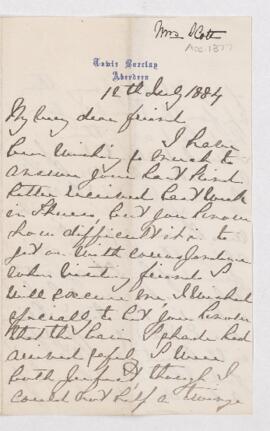 Mrs Scott
Acc. 1877
Tewis Barclay
Aberdeen
12th July 1884
My very dear friend
I have
been wishing so much to
answer your last kind
letter received last week
in Thurso, but you know
how difficult it is to
get on with correspondence
when visiting friends & 
will excuse me, I wished
specially to let you know
that the had
arrived safely & were
both perfect, though I
could not half a